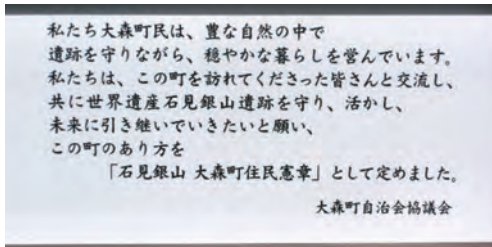 私たち大森町民は、豊な自然の中で
遺跡を守りながら、穏やかな暮らしを営んでいます。
私たちは、この町を訪れてくださった皆さんと交流し、
共に世界遺産石見銀山遺跡を守り、活かし、
未来に引き継いでいきたいと願い、
この町のあり方を
「石見銀山 大森町住民憲章」として定めました。
大森町自治会協議会